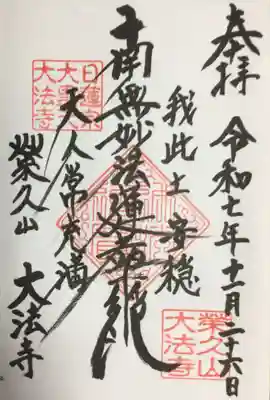 奉拝
令和七年十一月二十六日
我此土安穏
南無妙法蓮華経
天人常充満
榮久山 大法寺
日蓮宗
大法寺
榮久山
大法寺